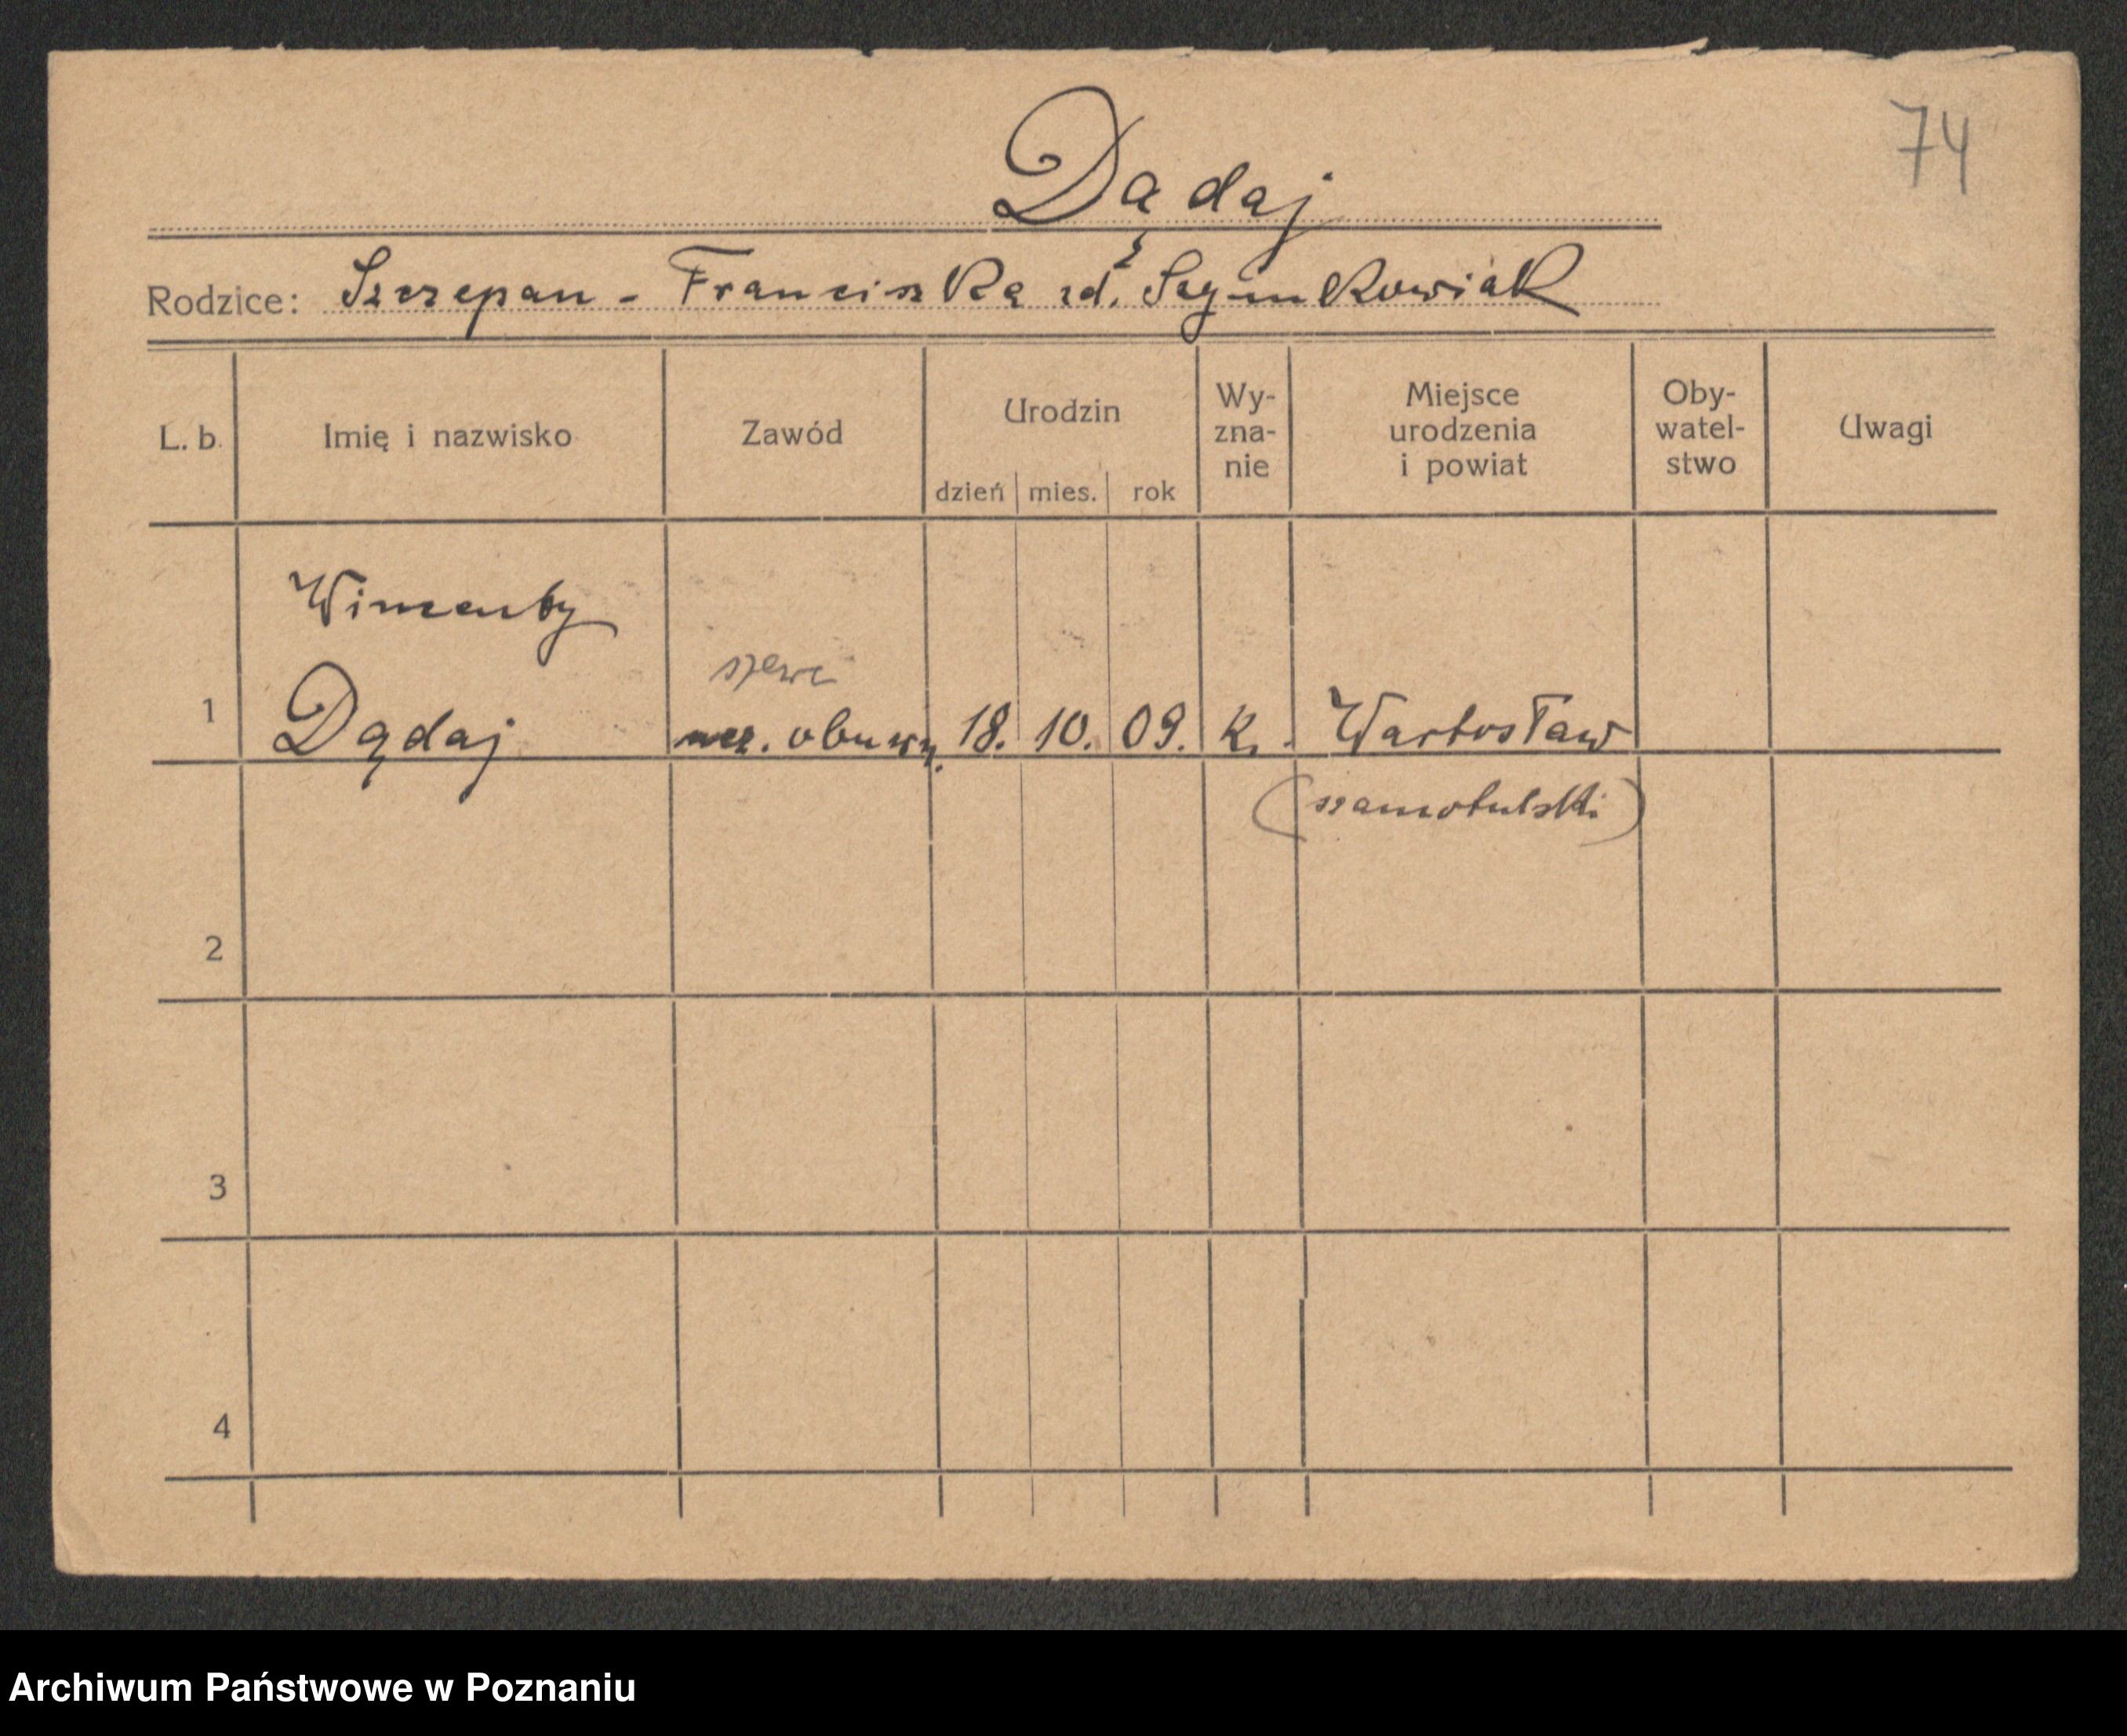 74
Dądaj
Rodzice: Szczepan - Franciszka zd. Szymkowiak
L. b. Imię i nazwisko Zawód Urodzin dzień mies. rok Wy- zna- nie Miejsce urodzenia i powiat Oby- watel- stwo Uwagi
Wincenty
szewc
1 Dądaj ucz. obuwn. 18. 10. 09. k. Wartosław
(szamotulski)
2
3
4
Archiwum Państwowe w Poznaniu